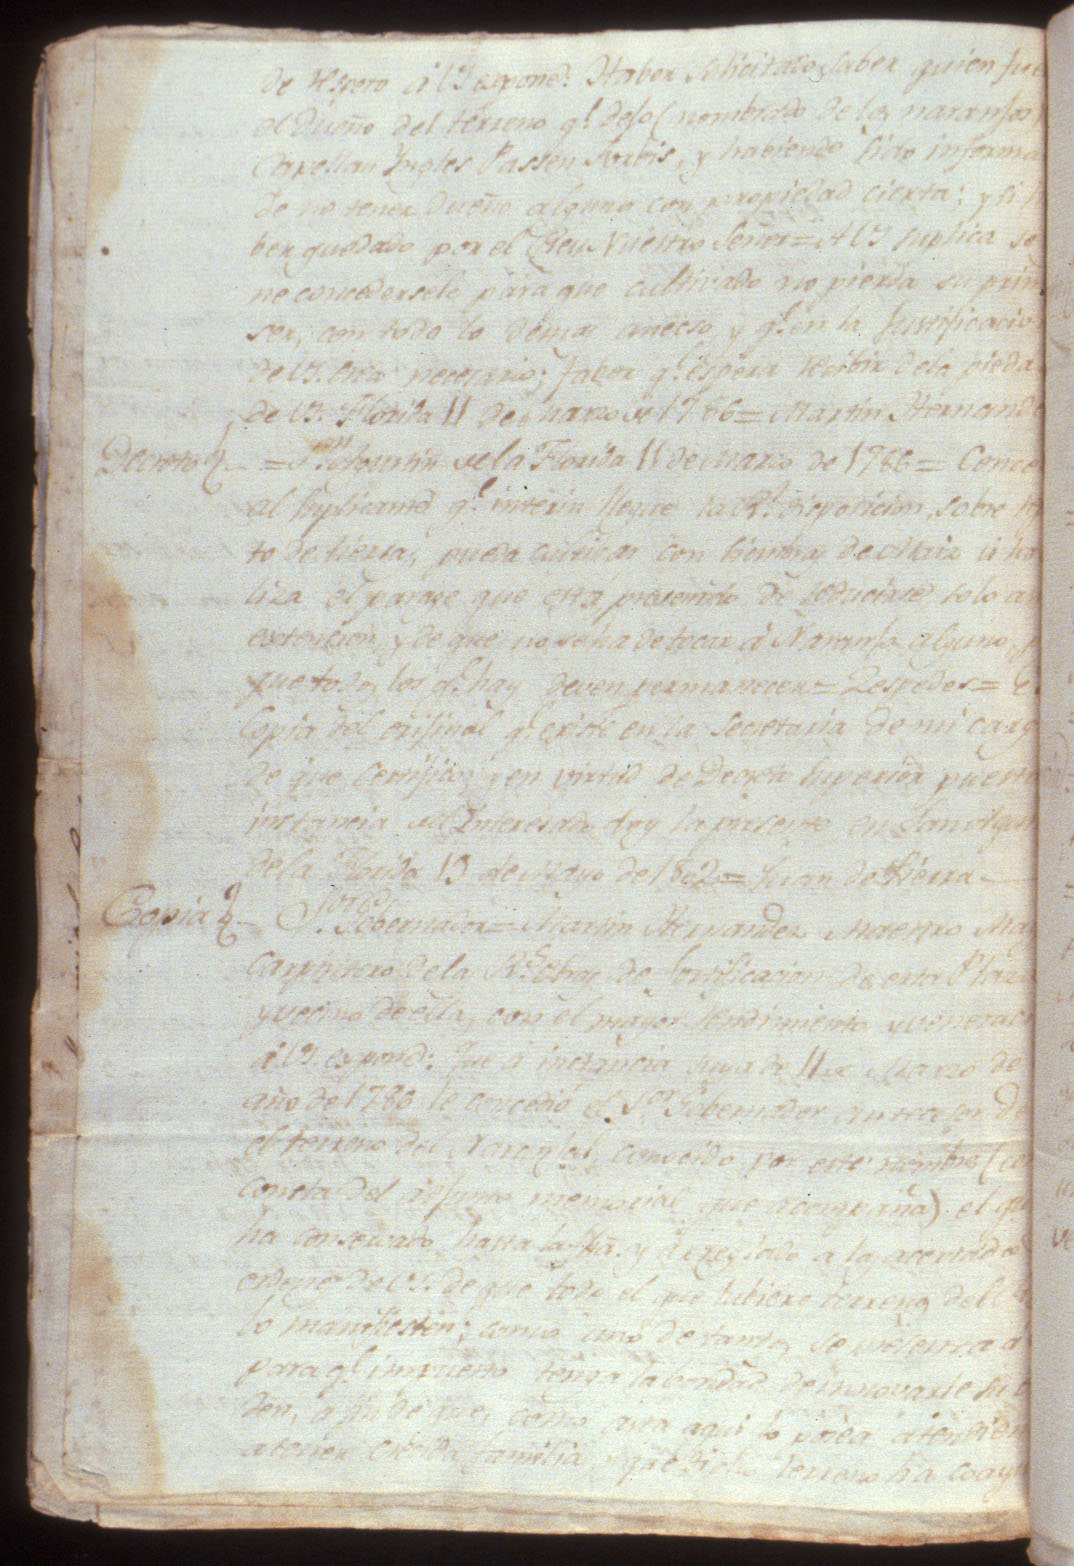 de respeto á V.S. expone: Haber solicitado saber quien fue
el Dueño del terreno q.e dejó (nombrado de los naranjos
Capellan Yngles, y habiendo sido informa
de no tener Dueño alguno con propiedad cierta; y si
ber quedado por el Rey Nuestro Señor = A V.S. suplica se
ne concedersele para que cultivado no pierda su prim
ser, con todo lo demas anecso, y q.e en la Justificacio
de V.S. necesario; fabor q.e espera recibir de la pieda
de V.S. Florida 11 de Marzo de 1786 = Martin Hernande
Decreto = S.n Agustin de la Florida 11 de Marzo de 1786 = Conce
al Suplicante q.e interin llegue la R.l disposicion, sobre
to de tierras, pueda cultivar con siembras de Maiz ú
liza el parage que esta
extencion, y de que no se ha de tocar á Naranjo alguno, p
que todos los q.e hay deven permanecer = Zespedes = E
Copia del original q.e existe en la Secretaria de mi carg
de que Certifico; y en virtud de Decreto Superior puesto
instancia del Interesado doy la presente en San Agus
de la Florida 13 de Mayo de 1802 = Juan de Pierra
Copia S.or Gobernador = Martin Hernandez Maestro May
Carpintero de la R.s Obras de fortificacion de esta Plaza
y vecino de ella, con el mayor rendimiento y venerac
á V.S. expone: Que á instancia suya de 11 de Marzo de
año de 1786 le concedió el S.or Gobernador antecesor de
el terreno del Naranjal, conocido por este nombre (co
consta del adjunto memorial que acompaña) el que
ha conservado hasta la fha. y arreglado a las acertadas
ordenes de V.S. de que todo el que tubiere terrenos del
lo manifesten; como uno de tantos, se presenta a
para q.e impuesto tenga la bondad de inovarle su
den, a fin de que, como asta aqui lo posea atendien
a tener crecida familia, y que dicho terreno ha coay